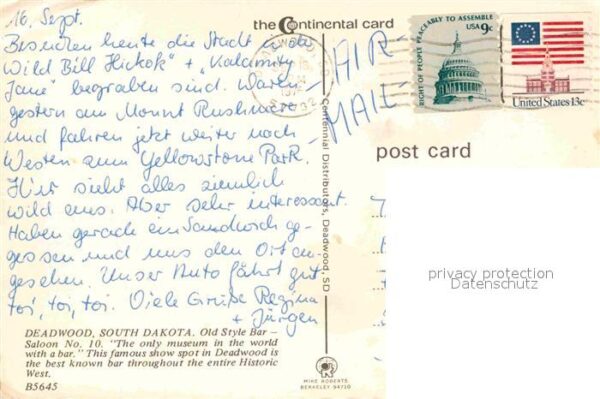 16. Sept.
Besuchen heute die Stadt in der
"Wild Bill Hickok" + "Kalamity
Jane" begraben sind. Waren
gestern am Mount Rushmore
und fahren jetzt weiter nach
Westen zum Yellowstone Park.
Hier sieht alles ziemlich
wild aus. Aber sehr interessant.
Haben gerade ein Sandwich ge-
gessen und uns den Ort an-
gesehen. Unser Auto fährt gut
toi, toi, toi. Viele Grüße Regina
+ Jürgen
DEADWOOD, SOUTH DAKOTA. Old Style Bar –
Saloon No. 10. "The only museum in the world
with a bar." This famous show spot in Deadwood is
the best known bar throughout the entire Historic
West.
B5645
the Continental card
Centennial Distributors, Deadwood, SD
MIKE ROBERTS
BERKELEY 94710
AIR
MAIL
RIGHT OF PEOPLE PEACEABLY TO ASSEMBLE
USA 9c
United States 13c
post card
privacy protection
Datenschutz